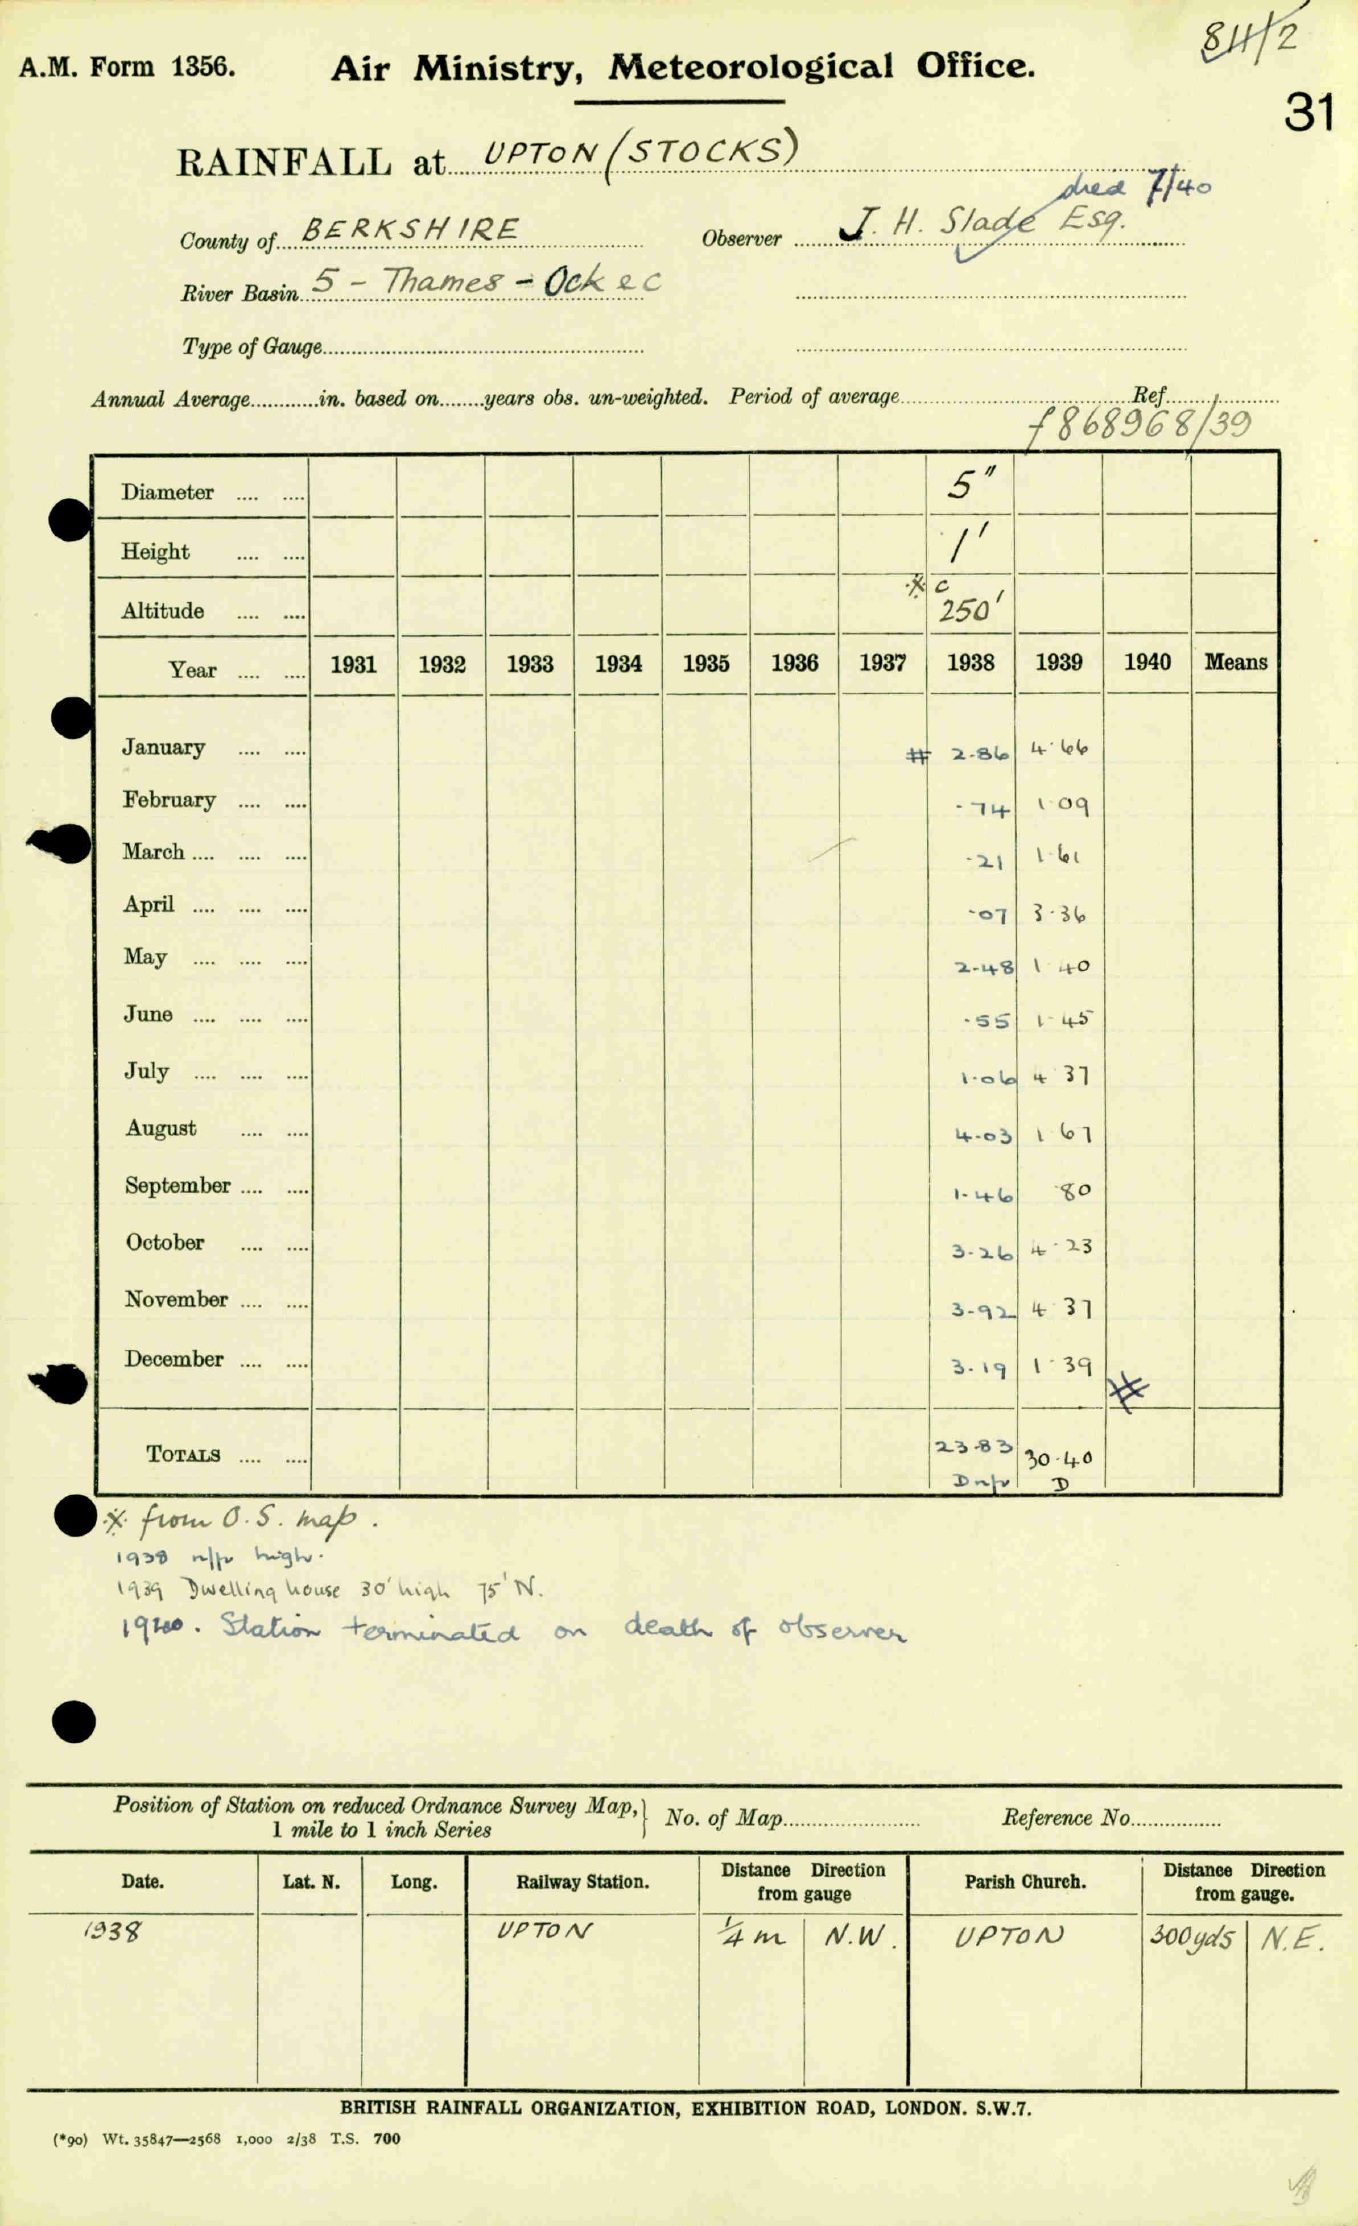 84/2
A.M. Form 1356. Air Ministry, Meteorological Office.
31
RAINFALL at UPTON (STOCKS)
died 7/40
County of BERKSHIRE Observer J. H. Slade Esq.
River Basin 5 - Thames - Ock &c
Type of Gauge
Annual Average............in. based on........years obs. un-weighted. Period of average Ref.
f868968/39
Diameter .... .... 5"
Height .... .... 1'
※ c
Altitude .... .... 250'
Year .... .... 1931 1932 1933 1934 1935 1936 1937 1938 1939 1940 Means
January .... .... # 2.86 4.66
February .... .... .74 1.09
March .... .... .... .21 1.61
April .... .... .... .07 3.36
May .... .... .... 2.48 1.40
June .... .... .... .55 1.45
July .... .... .... 1.06 4.37
August .... .... 4.03 1.67
September .... .... 1.46 .80
October .... .... 3.26 4.23
November .... .... 3.92 4.37
December .... .... 3.19 1.39
#
TOTALS .... .... 23.83 30.40
D n/r D
※ from O.S. map.
1938 n/r high.
1939 Dwelling house 30' high 75' N.
1940. Station terminated on death of observer
Position of Station on reduced Ordnance Survey Map,} No. of Map Reference No.
1 mile to 1 inch Series
Date. Lat. N. Long. Railway Station. Distance Direction from gauge Parish Church. Distance Direction from gauge.
1938 UPTON ¼ m N.W. UPTON 300yds N.E.
BRITISH RAINFALL ORGANIZATION, EXHIBITION ROAD, LONDON. S.W.7.
(*90) Wt. 35847—2568 1,000 2/38 T.S. 700